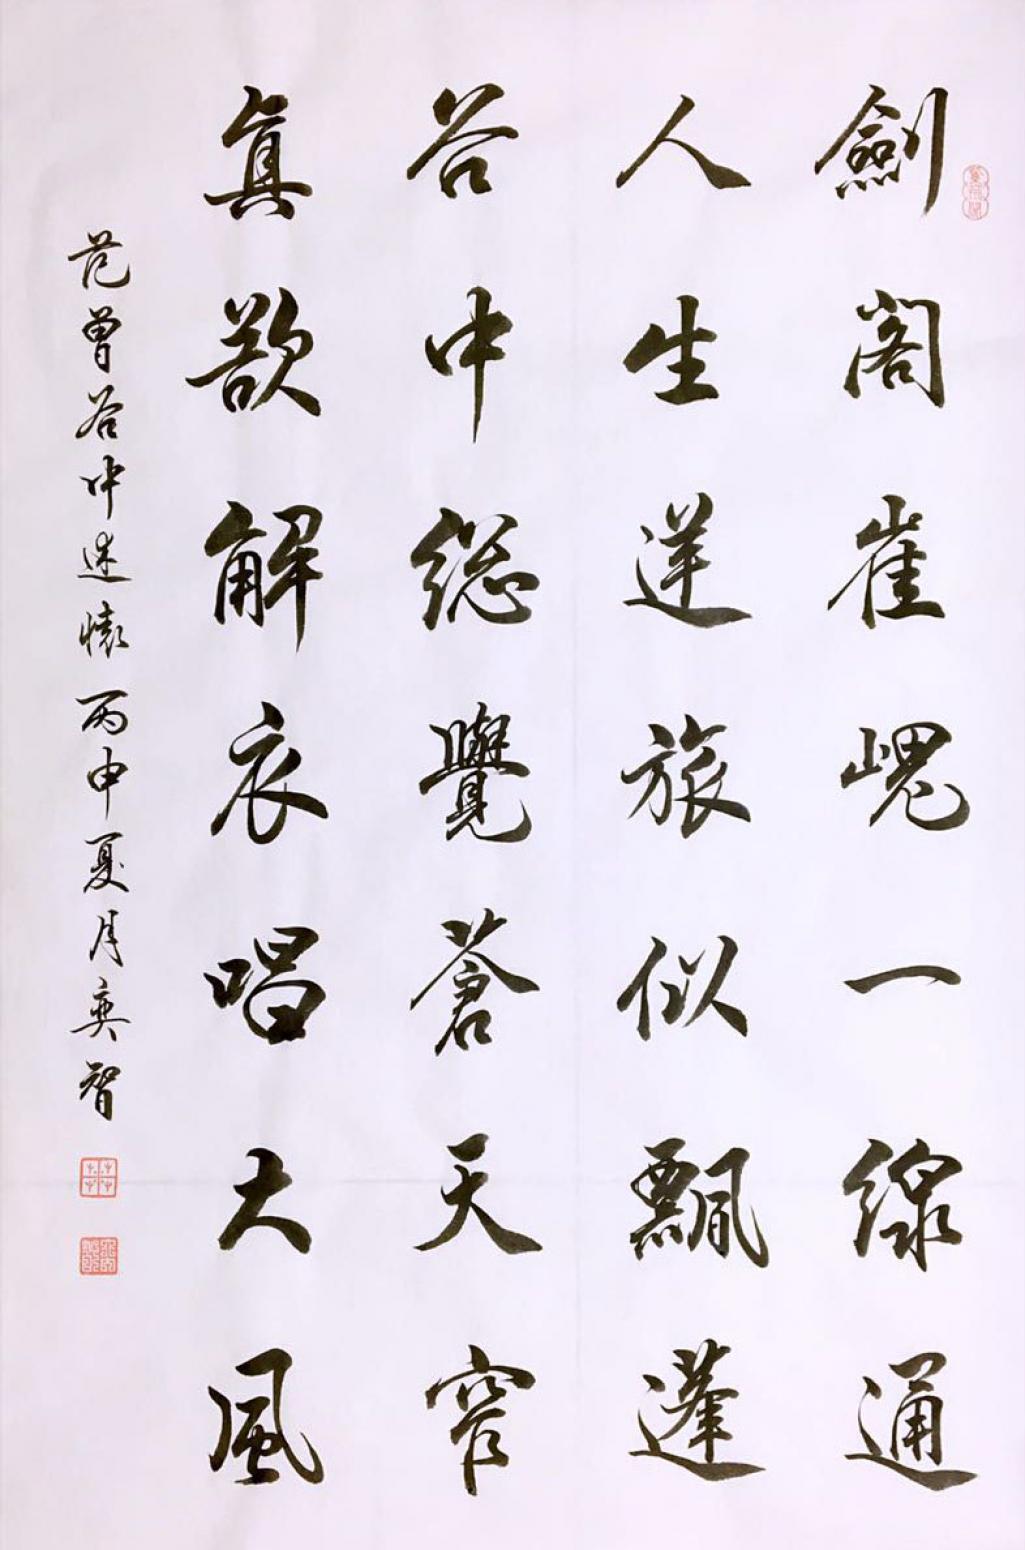 劍閣崔嵬一線通
人生逆旅似飄蓬
谷中總覺蒼天窄
真欲解衣唱大風
范曾谷中述懷丙申夏月奕智